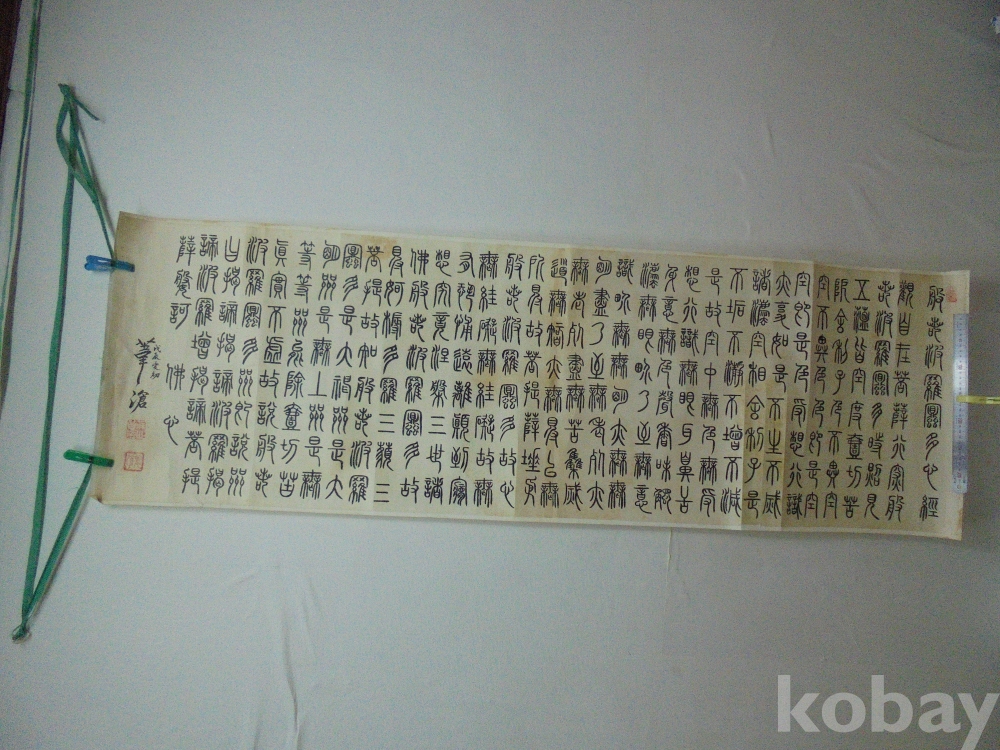 般若波羅蜜多心經
觀自在菩薩行深般
若波羅蜜多時照見
五蘊皆空度壹切苦
厄舍利子色不異空
空不異色色卽是空
空卽是色受想行識
亦復如是舍利子是
諸法空相不生不滅
不垢不淨不增不減
是故空中無色無受
想行識無眼耳鼻舌
身意無色聲香味觸
法無眼界乃至無意
識界無無明亦無無
明盡乃至無老死亦
無老死盡無苦集滅
道無智亦無得以無
所得故菩提薩埵依
般若波羅蜜多故心
無罣礙無罣礙故無
有恐怖遠離顚倒夢
想究竟涅槃三世諸
佛般若波羅蜜多故
得阿耨多羅三藐三
菩提故知般若波羅
蜜多是大神呪是大
明呪是無上呪是無
等等呪能除壹切苦
眞實不虛故說般若
波羅蜜多呪卽說呪
曰揭諦揭諦波羅揭
諦波羅增揭諦菩提
薩婆訶 佛心
華滄
kobay